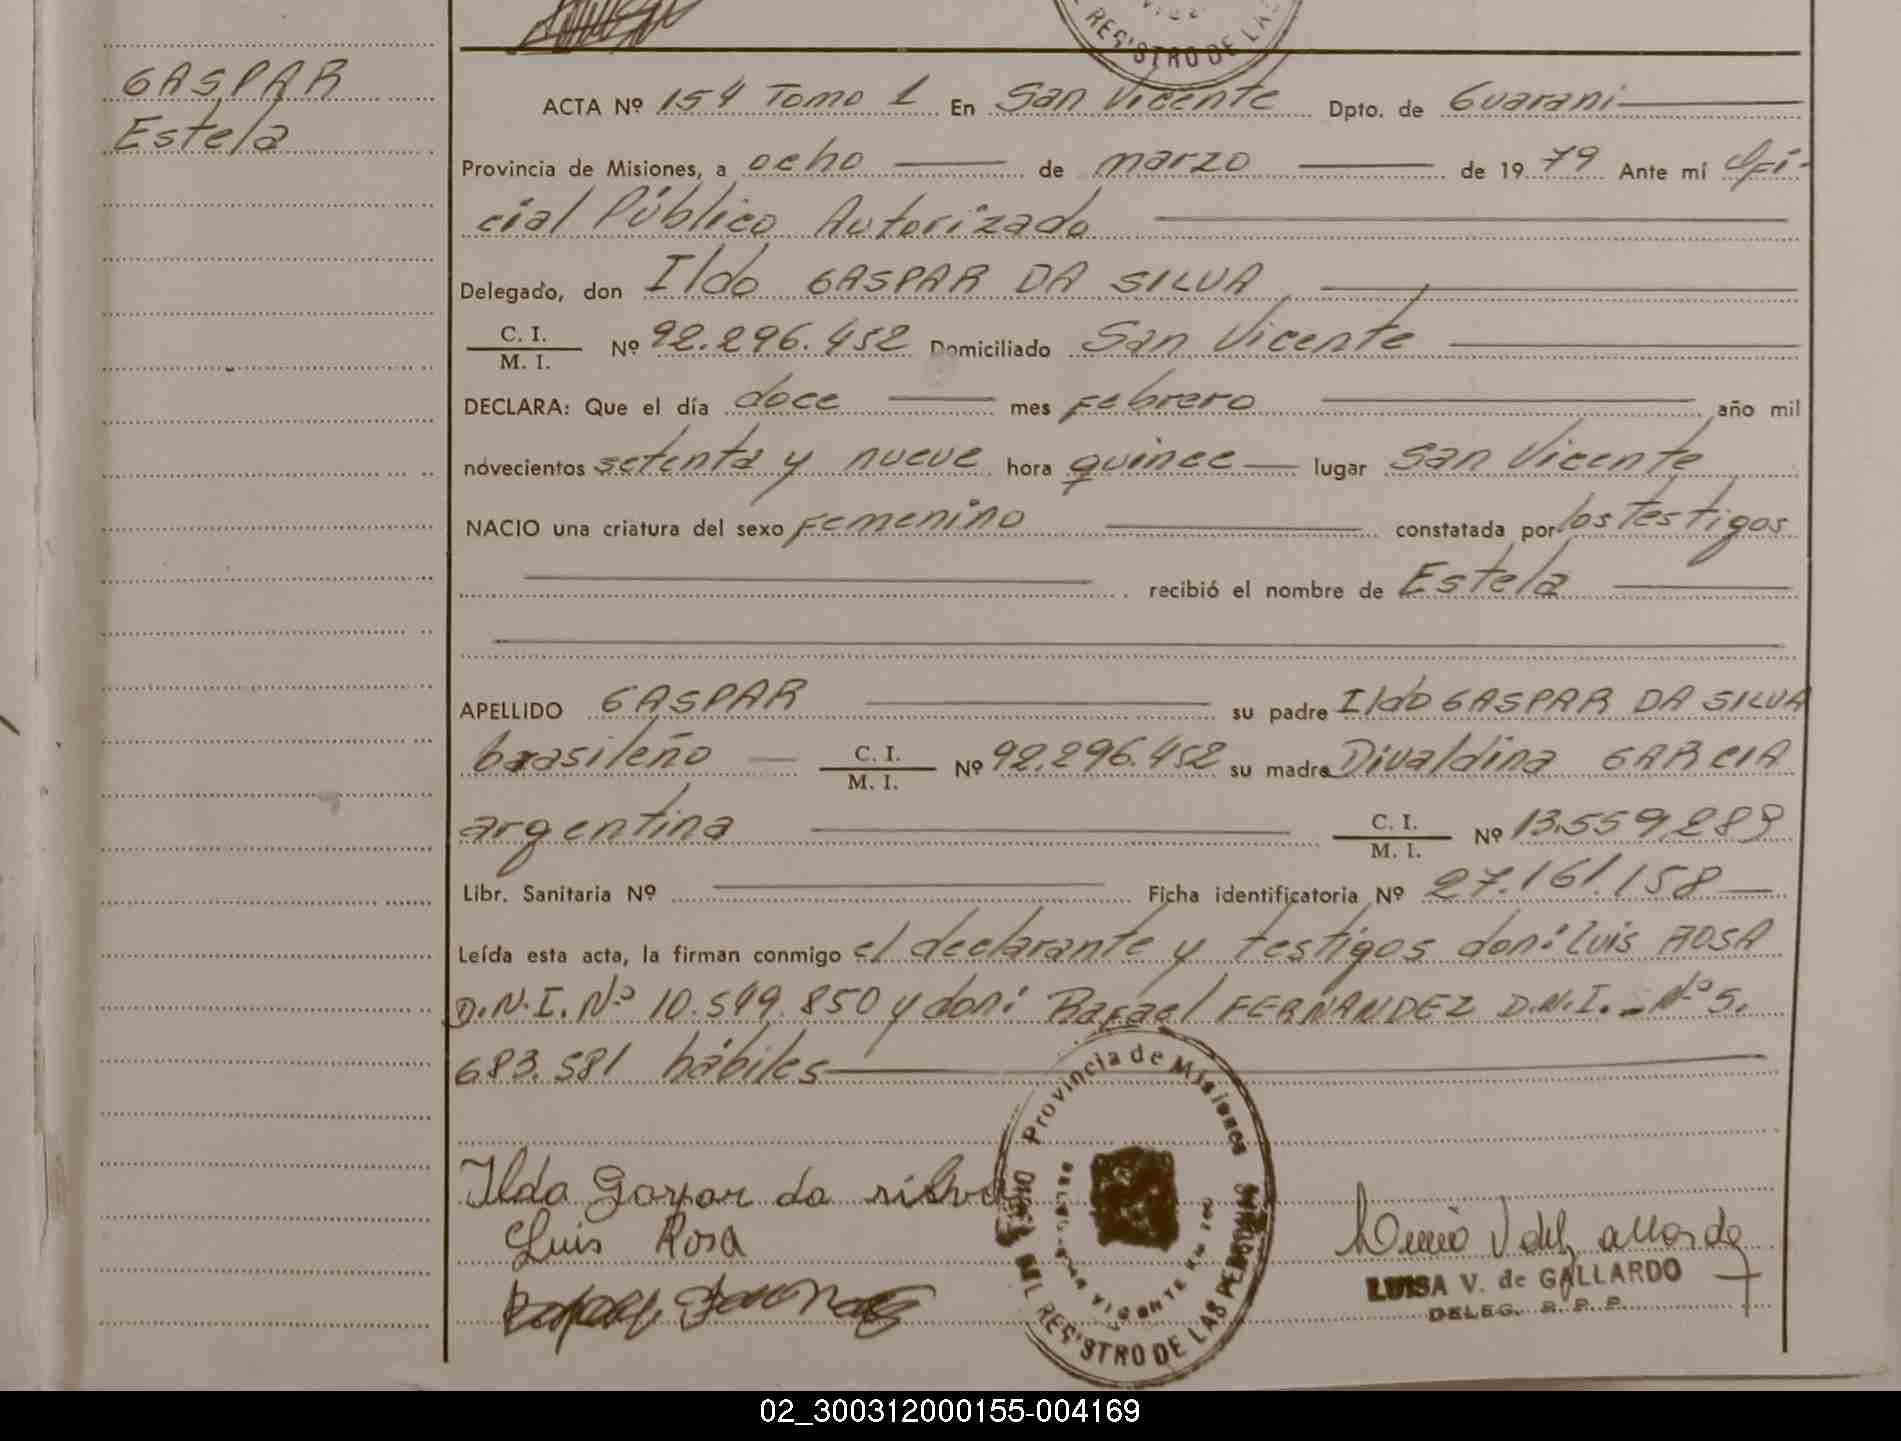 REGISTRO DE LAS
GASPAR
Estela
ACTA Nº 154 Tomo 1 En San Vicente Dpto. de Guarani
Provincia de Misiones, a ocho de marzo de 1979 Ante mí Ofi-
cial Público Autorizado
Delegado, don Ildo GASPAR DA SILVA
C. I.
M. I.
Nº 92.296.452 Domiciliado San Vicente
DECLARA: Que el día doce mes febrero año mil
novecientos setenta y nueve hora quince lugar San Vicente
NACIO una criatura del sexo femenino constatada por los testigos
recibió el nombre de Estela
APELLIDO GASPAR su padre Ildo GASPAR DA SILVA
brasileño C. I.
M. I.
Nº 92.296.452 su madre Divaldina GARCIA
argentina C. I.
M. I.
Nº 13.559.289
Libr. Sanitaria Nº Ficha identificatoria Nº 27.161.158
Leída esta acta, la firman conmigo el declarante y testigos don: Luis ROSA
D.N.I. Nº 10.549.850 y don: Rafael FERNANDEZ D.N.I. Nº 5.
683.581 hábiles
Provincia de Misiones
DEL REGISTRO DE LAS PERSONAS
SAN VICENTE
Ildo Gaspar da silva
Luis Rosa
LUISA V. de GALLARDO
DELEG. R. P. P.
02_300312000155-004169